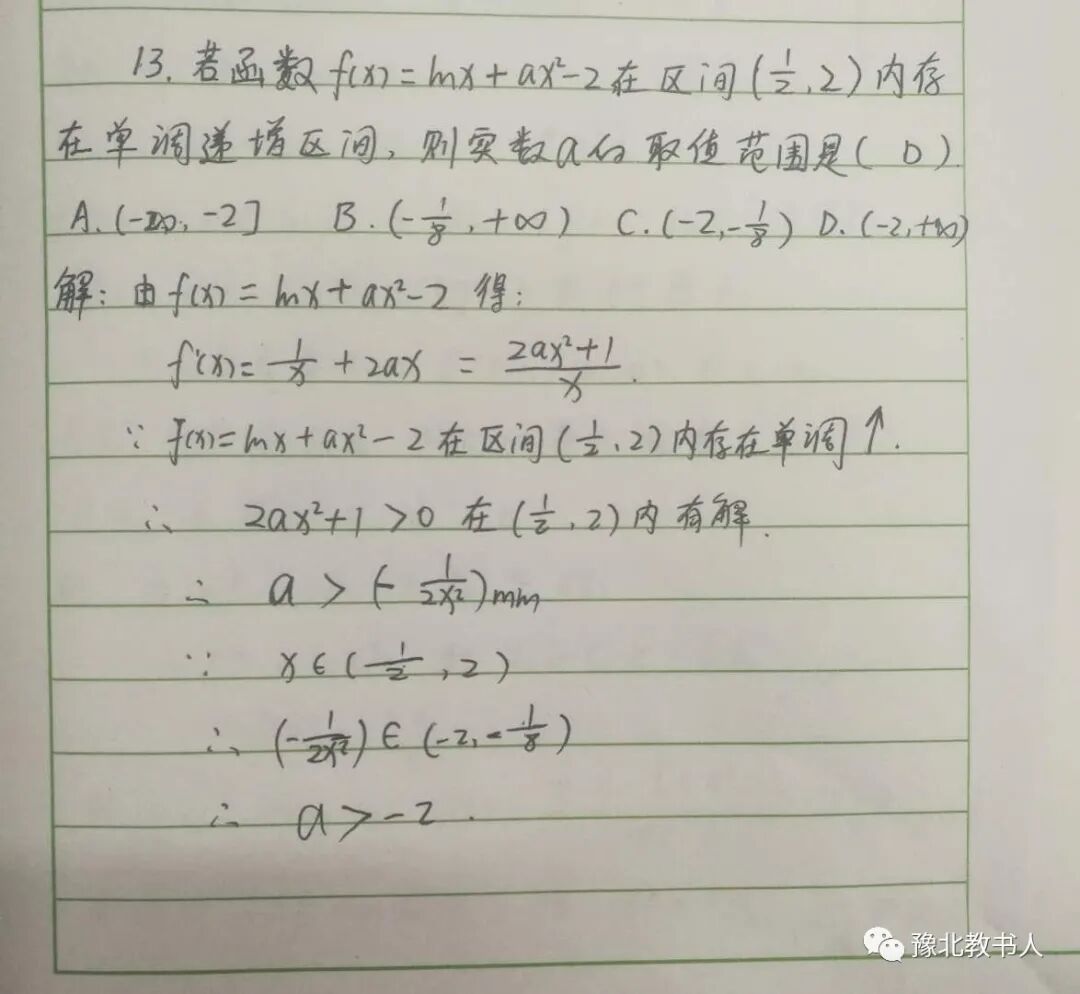 13. 若函数 f(x) = lnx + ax² - 2 在区间 (1/2, 2) 内存
在单调递增区间, 则实数 a 的取值范围是 ( D )
A. (-∞, -2]  B. (-1/8, +∞)  C. (-2, -1/8)  D. (-2, +∞)
解: 由 f(x) = lnx + ax² - 2 得:
f'(x) = 1/x + 2ax = (2ax²+1)/x.
∵ f(x) = lnx + ax² - 2 在区间 (1/2, 2) 内存在单调↑.
∴ 2ax²+1 > 0 在 (1/2, 2) 内有解.
∴ a > (- 1/2x²)min
∵ x ∈ (1/2, 2)
∴ (-1/2x²) ∈ (-2, -1/8)
∴ a > -2.
豫北教书人